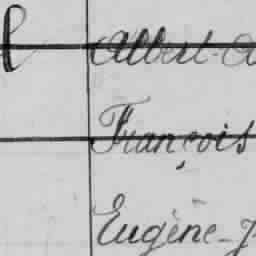 Albert-A
François
Eugène-J